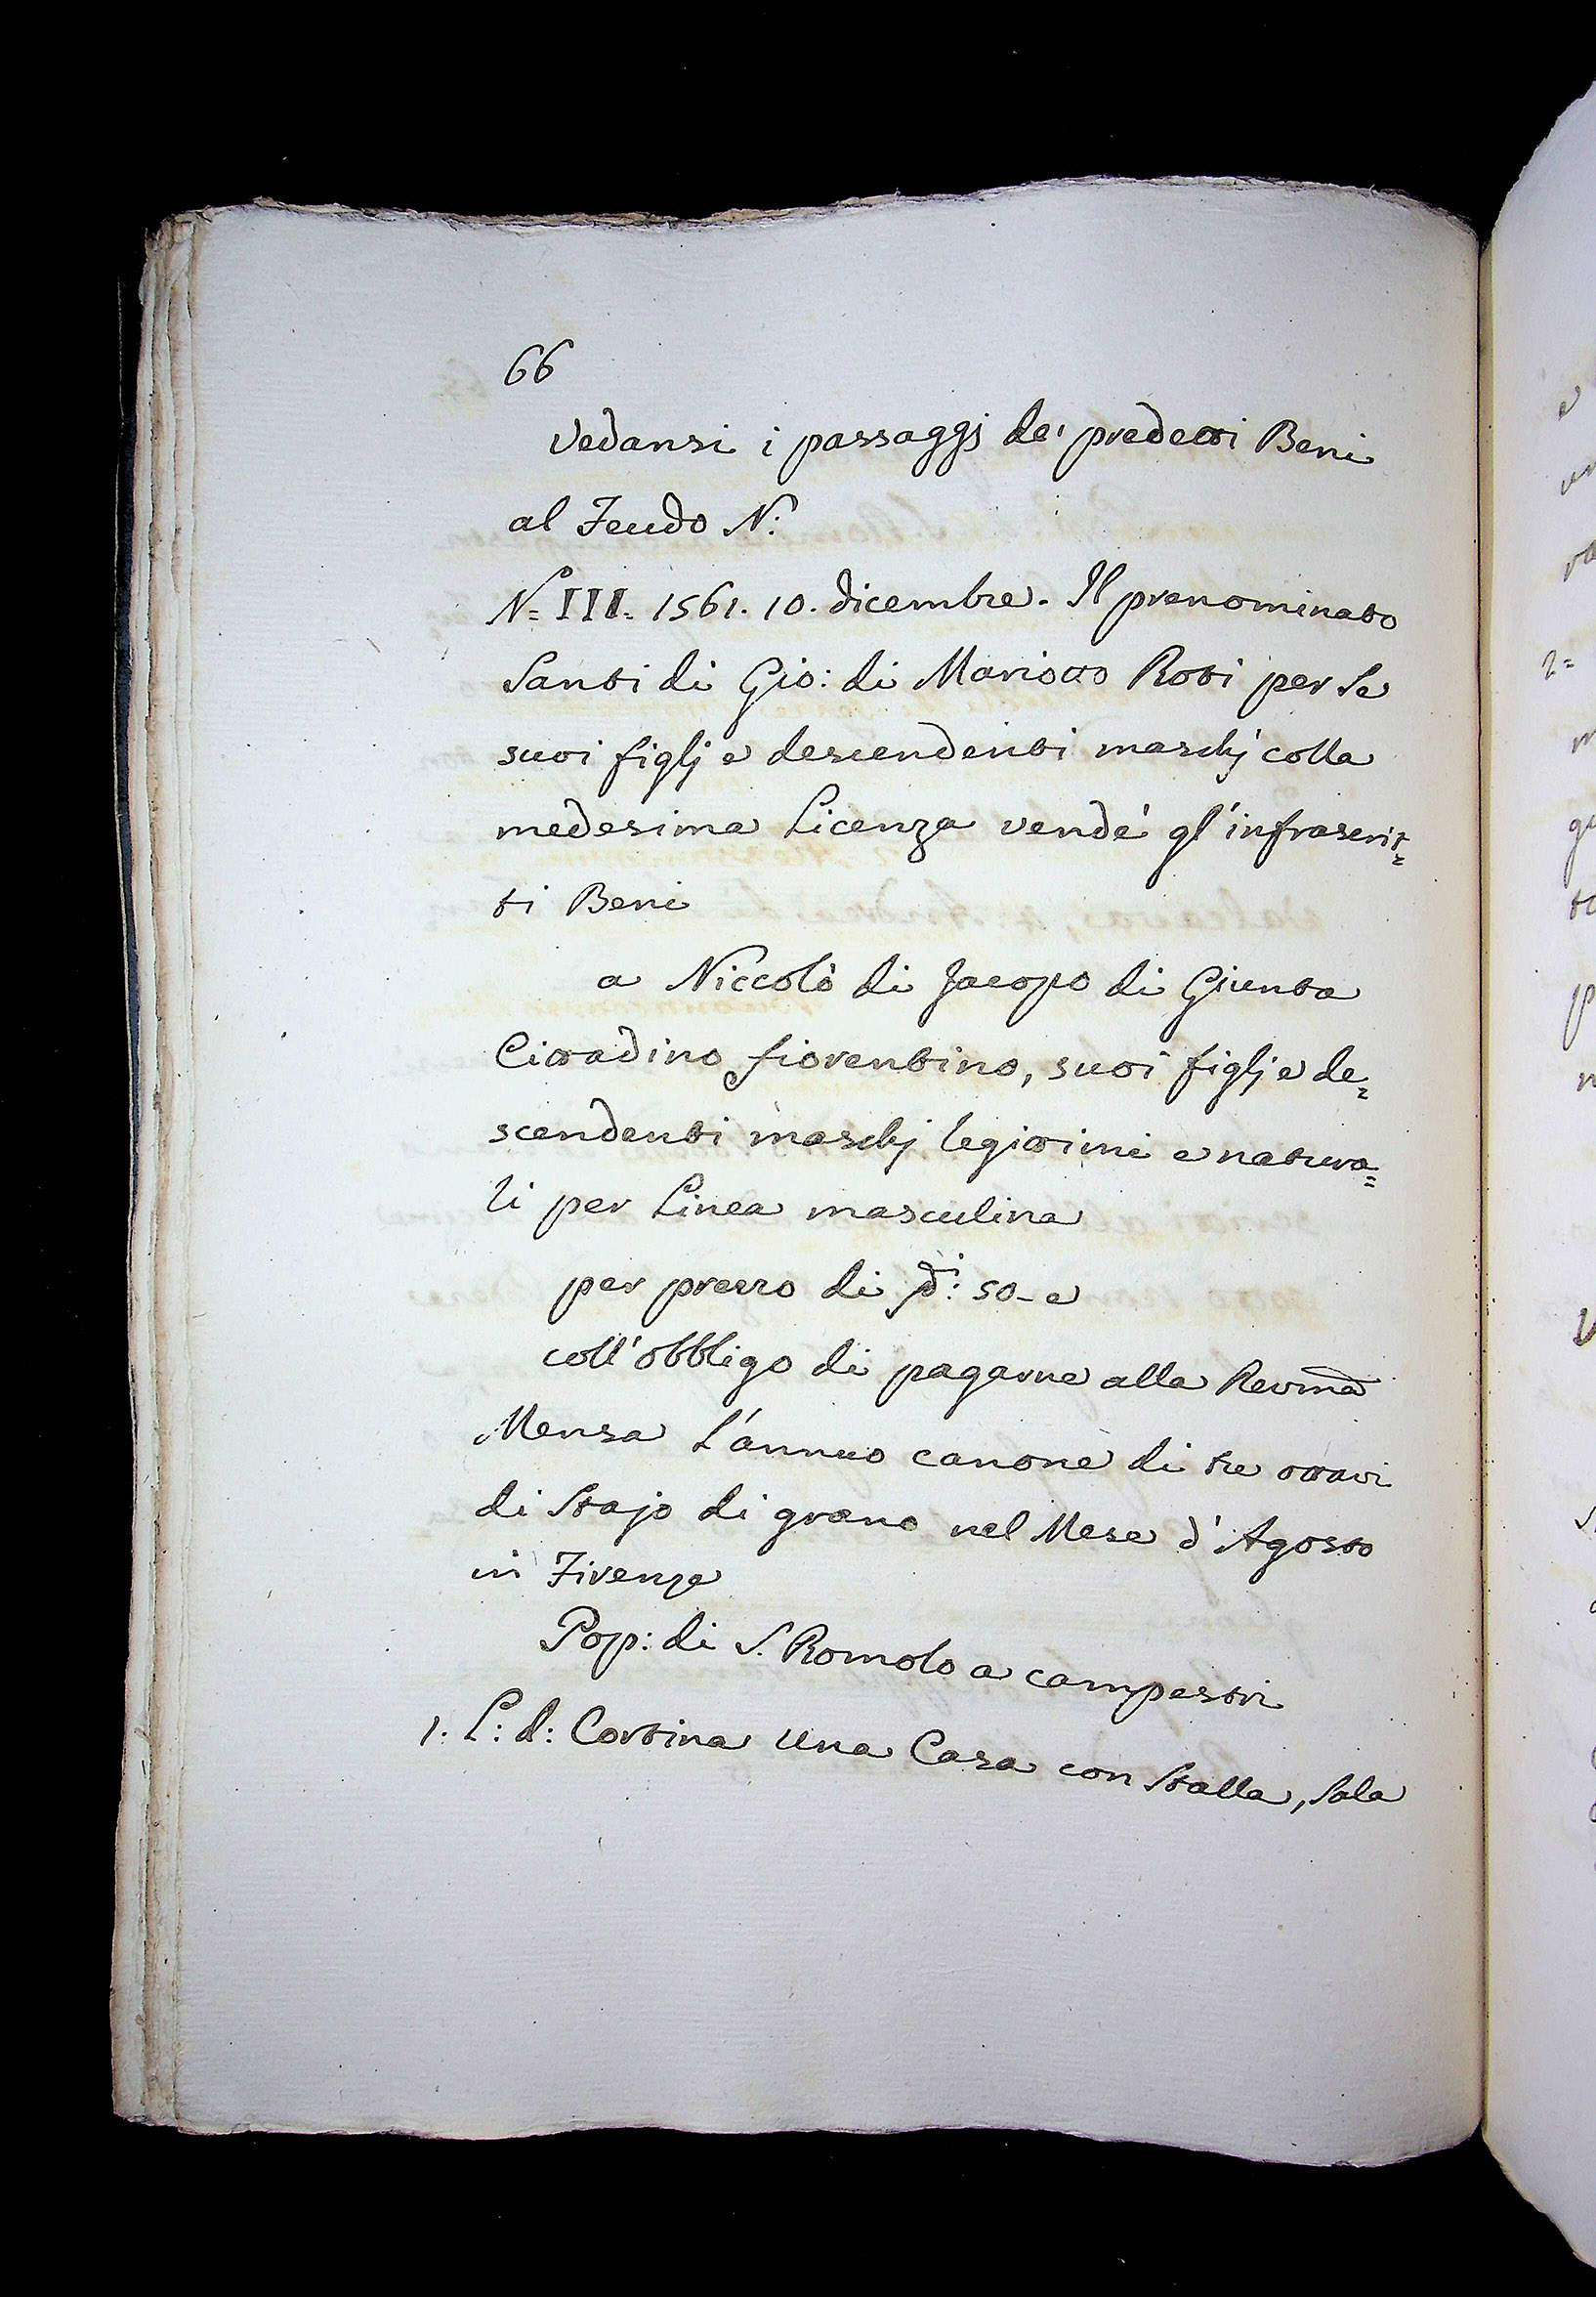 66
Vedansi i passaggj de' predetti Beni
al Feudo N.°
N.° III. 1561. 10. dicembre. Il prenominato
Santi di Gio: di Mariotto Roti per se
suoi figlj e descendenti maschj colla
medesima Licenza vendé gl'infrascrit=
ti Beni
a Niccolò di Jacopo di Giunta
Cittadino fiorentino, suoi figlj e de=
scendenti maschj legittimi e natura=
li per Linea masculina
per prezzo di di: 50 - e
coll'obbligo di pagarne alla Revma
Mensa l'annuo canone di tre ottavi
di Stajo di grano nel Mese d'Agosto
in Firenze
Pop: di S. Romolo a campestri
1. L: d: Cortina una Casa con Stalla, Sala